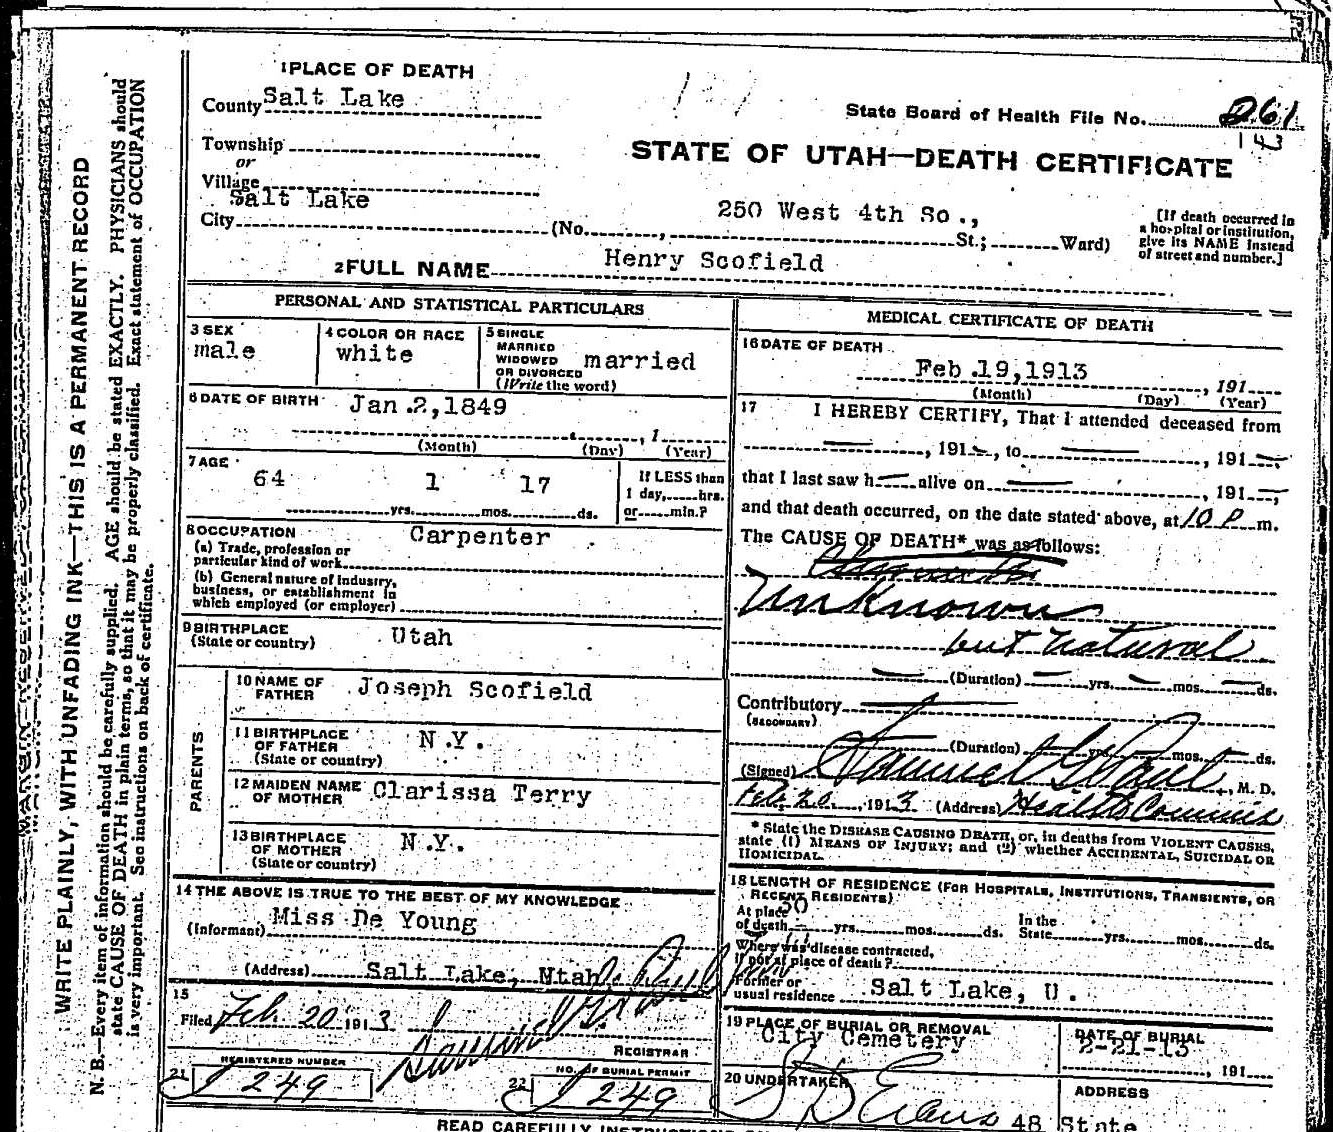 1 PLACE OF DEATH
County Salt Lake
State Board of Health File No. 261
143
Township
or
Village
STATE OF UTAH—DEATH CERTIFICATE
Salt Lake
City (No. 250 West 4th So., St.; Ward)
[If death occurred in
a hospital or institution,
give its NAME instead
of street and number.]
2 FULL NAME Henry Scofield
PERSONAL AND STATISTICAL PARTICULARS
3 SEX
male
4 COLOR OR RACE
white
5 SINGLE
MARRIED
WIDOWED
OR DIVORCED
(Write the word)
married
6 DATE OF BIRTH Jan.2,1849
, 1
(Month) (Day) (Year)
7 AGE
64 1 17
yrs. mos. ds.
If LESS than
1 day, hrs.
or min.?
8 OCCUPATION Carpenter
(a) Trade, profession or
particular kind of work
(b) General nature of industry,
business, or establishment in
which employed (or employer)
9 BIRTHPLACE
(State or country) Utah
PARENTS
10 NAME OF
FATHER Joseph Scofield
11 BIRTHPLACE
OF FATHER
(State or country) N.Y.
12 MAIDEN NAME
OF MOTHER Clarissa Terry
13 BIRTHPLACE
OF MOTHER
(State or country) N.Y.
14 THE ABOVE IS TRUE TO THE BEST OF MY KNOWLEDGE
(Informant) Miss De Young
(Address) Salt Lake, Utah
15
Filed Feb. 20 1913
Samuel G. Paul
REGISTRAR
REGISTERED NUMBER
21 249
NO. OF BURIAL PERMIT
22 249
MEDICAL CERTIFICATE OF DEATH
16 DATE OF DEATH
Feb.19,1913 , 191
(Month) (Day) (Year)
17 I HEREBY CERTIFY, That I attended deceased from
— , 191—, to — , 191—,
that I last saw h— alive on — , 191—,
and that death occurred, on the date stated above, at 10 P m.
The CAUSE OF DEATH* was as follows:
Unknown
but natural
— (Duration) — yrs. — mos. — ds.
Contributory —
(SECONDARY)
(Duration) yrs. mos. ds.
(Signed) Samuel G. Paul , M. D.
Feb. 20 , 1913 (Address) Health Commis
* State the DISEASE CAUSING DEATH, or, in deaths from VIOLENT CAUSES,
state (1) MEANS OF INJURY; and (2) whether ACCIDENTAL, SUICIDAL OR
HOMICIDAL.
18 LENGTH OF RESIDENCE (FOR HOSPITALS, INSTITUTIONS, TRANSIENTS, OR
RECENT RESIDENTS)
At place 50
of death yrs. mos. ds.
In the
State yrs. mos. ds.
Where was disease contracted,
if not at place of death?
Former or
usual residence Salt Lake, U.
19 PLACE OF BURIAL OR REMOVAL
City Cemetery
DATE OF BURIAL
2-21-13
, 191
20 UNDERTAKER
S D Evans
ADDRESS
48 State
READ CAREFULLY INSTRUCTIONS
WRITE PLAINLY, WITH UNFADING INK—THIS IS A PERMANENT RECORD
N. B.—Every item of information should be carefully supplied. AGE should be stated EXACTLY. PHYSICIANS should
state CAUSE OF DEATH in plain terms, so that it may be properly classified. Exact statement of OCCUPATION
is very important. See instructions on back of certificate.